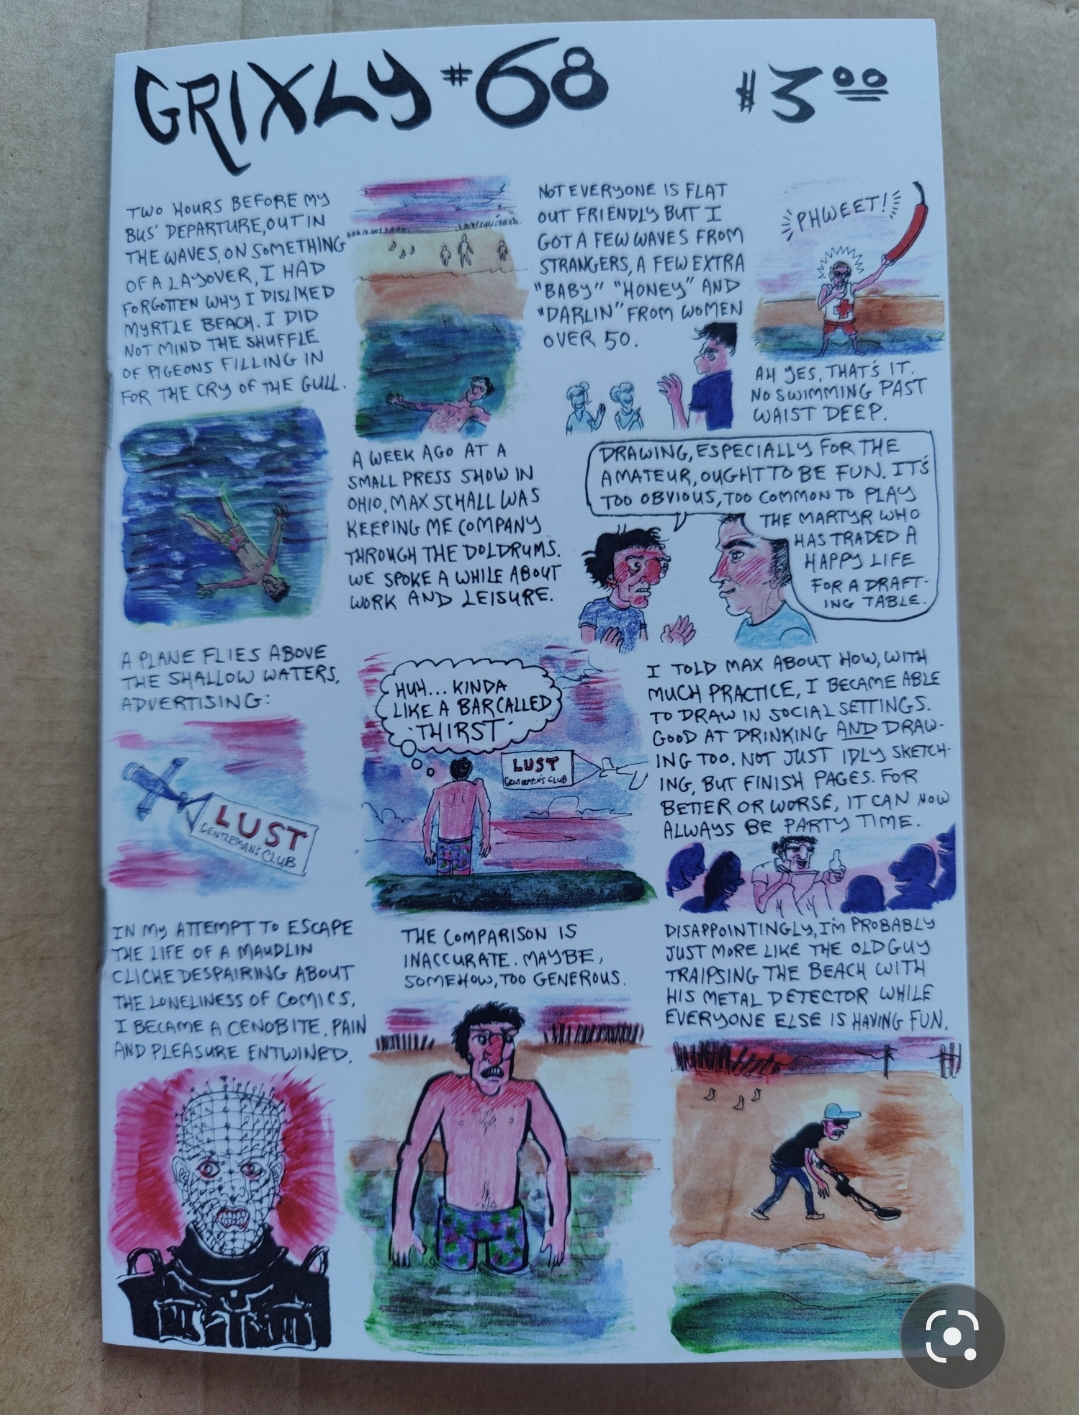 GRIXLY #68
$3.00
TWO HOURS BEFORE MY
BUS' DEPARTURE, OUT IN
THE WAVES, ON SOMETHING
OF A LAYOVER, I HAD
FORGOTTEN WHY I DISLIKED
MYRTLE BEACH. I DID
NOT MIND THE SHUFFLE
OF PIGEONS FILLING IN
FOR THE CRY OF THE GULL.
NOT EVERYONE IS FLAT
OUT FRIENDLY BUT I
GOT A FEW WAVES FROM
STRANGERS, A FEW EXTRA
"BABY" "HONEY" AND
"DARLIN" FROM WOMEN
OVER 50.
PHWEET!
AH YES, THAT'S IT.
NO SWIMMING PAST
WAIST DEEP.
A WEEK AGO AT A
SMALL PRESS SHOW IN
OHIO, MAX SCHALL WAS
KEEPING ME COMPANY
THROUGH THE DOLDRUMS.
WE SPOKE A WHILE ABOUT
WORK AND LEISURE.
DRAWING, ESPECIALLY FOR THE
AMATEUR, OUGHT TO BE FUN. IT'S
TOO OBVIOUS, TOO COMMON TO PLAY
THE MARTYR WHO
HAS TRADED A
HAPPY LIFE
FOR A DRAFT-
ING TABLE.
A PLANE FLIES ABOVE
THE SHALLOW WATERS,
ADVERTISING:
LUST
GENTLEMAN'S CLUB
HUH... KINDA
LIKE A BAR CALLED
'THIRST'
LUST
GENTLEMAN'S CLUB
I TOLD MAX ABOUT HOW, WITH
MUCH PRACTICE, I BECAME ABLE
TO DRAW IN SOCIAL SETTINGS.
GOOD AT DRINKING AND DRAW-
ING TOO. NOT JUST IDLY SKETCH-
ING, BUT FINISH PAGES. FOR
BETTER OR WORSE, IT CAN NOW
ALWAYS BE PARTY TIME.
IN MY ATTEMPT TO ESCAPE
THE LIFE OF A MAUDLIN
CLICHE DESPAIRING ABOUT
THE LONELINESS OF COMICS,
I BECAME A CENOBITE, PAIN
AND PLEASURE ENTWINED.
THE COMPARISON IS
INACCURATE. MAYBE,
SOMEHOW, TOO GENEROUS.
DISAPPOINTINGLY, I'M PROBABLY
JUST MORE LIKE THE OLD GUY
TRAIPSING THE BEACH WITH
HIS METAL DETECTOR WHILE
EVERYONE ELSE IS HAVING FUN.